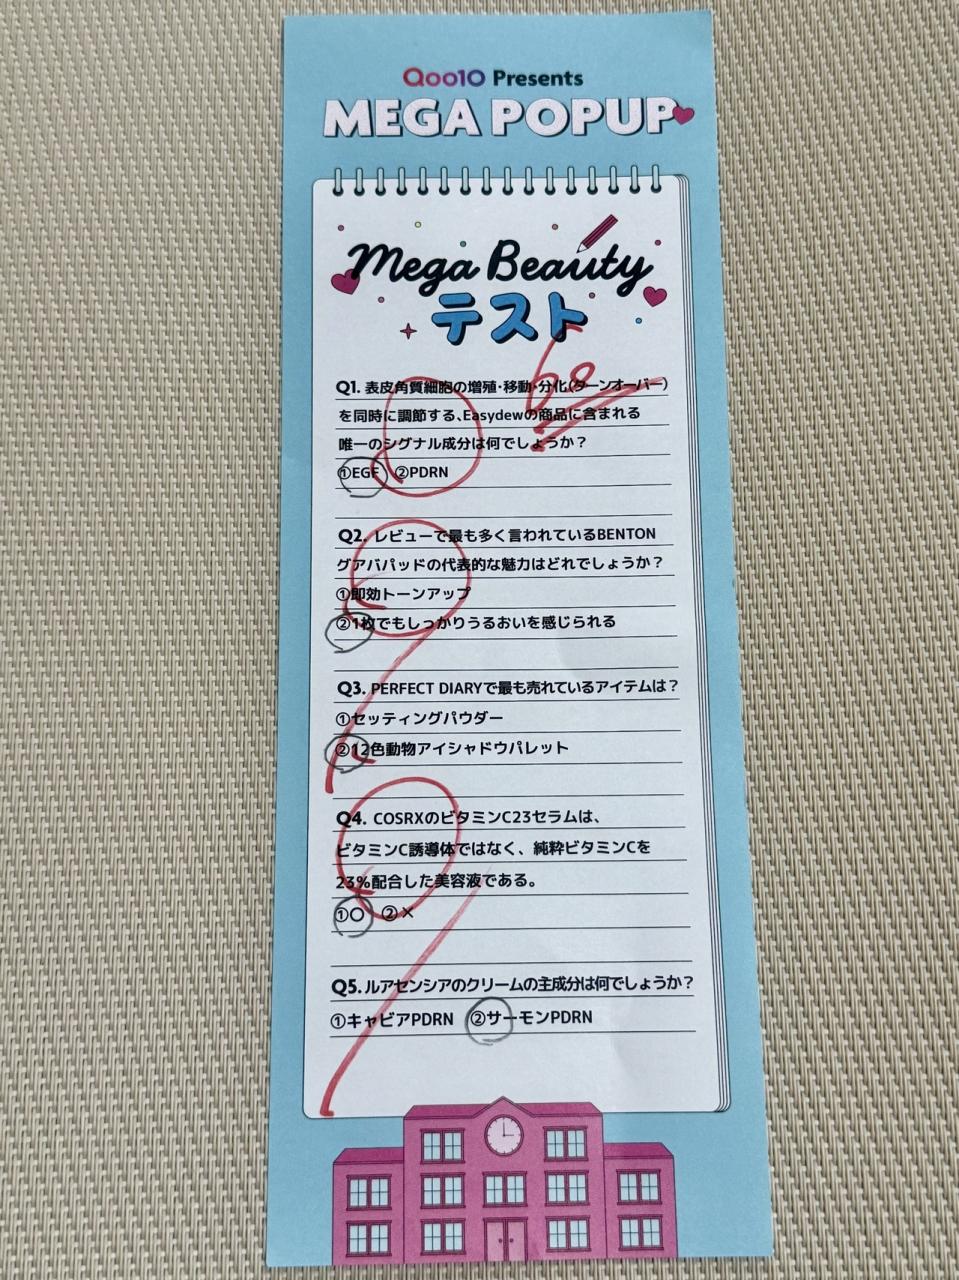 Qoo10 Presents
MEGA POPUP
Mega Beauty
テスト
60
Q1. 表皮角質細胞の増殖・移動・分化(ターンオーバー)
を同時に調節する、Easydewの商品に含まれる
唯一のシグナル成分は何でしょうか？
①EGF ②PDRN
Q2. レビューで最も多く言われているBENTON
グアバパッドの代表的な魅力はどれでしょうか？
①即効トーンアップ
②1枚でもしっかりうるおいを感じられる
Q3. PERFECT DIARYで最も売れているアイテムは？
①セッティングパウダー
②12色動物アイシャドウパレット
Q4. COSRXのビタミンC23セラムは、
ビタミンC誘導体ではなく、純粋ビタミンCを
23%配合した美容液である。
①〇 ②×
Q5. ルアセンシアのクリームの主成分は何でしょうか？
①キャビアPDRN ②サーモンPDRN